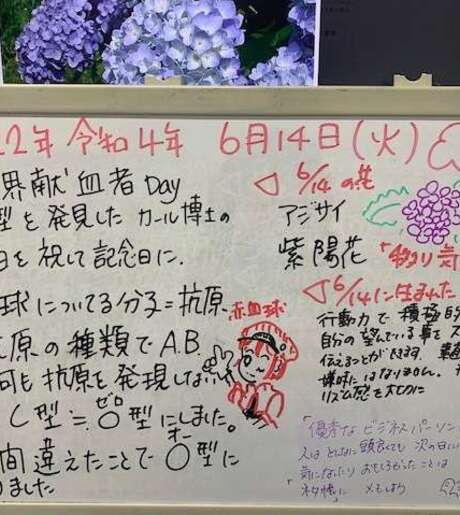 22年 令和4年 6月14日(火)
界献血者Day
型を発見した カール博士の
日を祝して記念日に.
球についてる分子=抗原
原の種類でA.B.
何も抗原を発現しない
C型≒ゼロ0型にしました。
間違えたことでオーO型に
ました
赤血球
◁ 6/14の花
アジサイ
紫陽花
「移り気
◁ 6/14に生まれた
行動力で積極
自分の望んでいる事を
伝えることができます.
リズム感を大切に
「優秀なビジネスパーソン
人はどんなに頭良くても次の日に
気になたりおもしろかったことは
「ネタ帳」に メモしよう